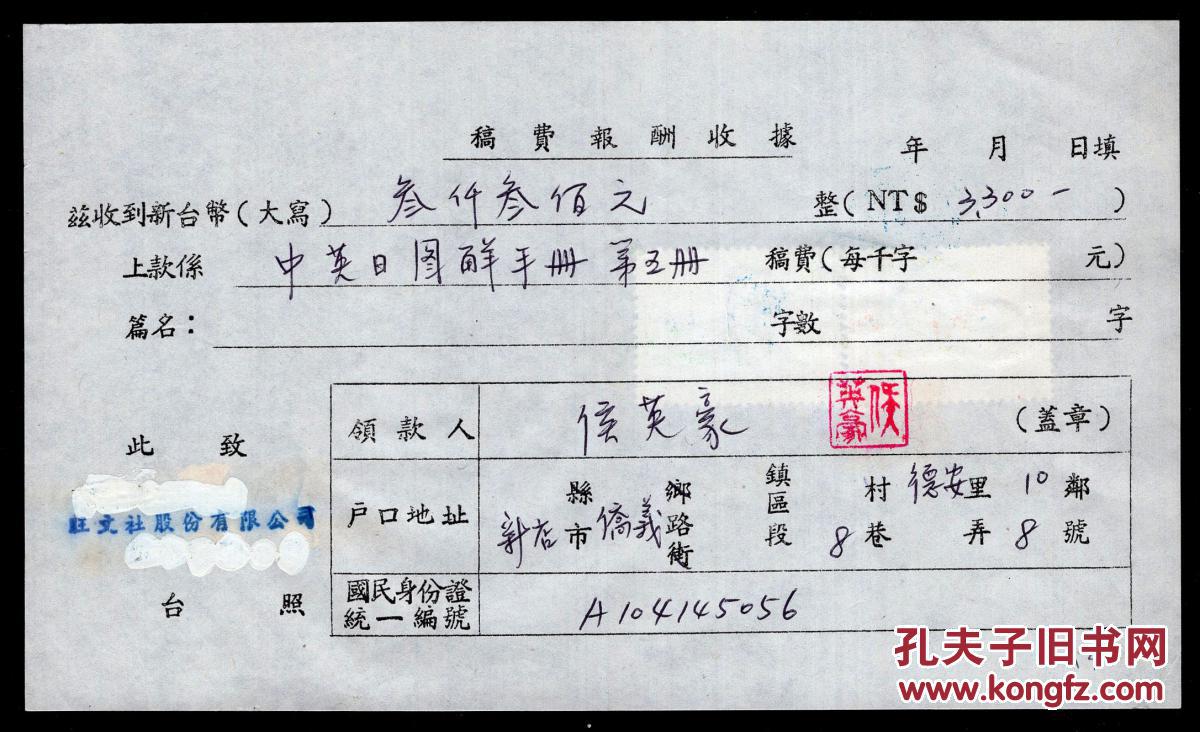 稿費報酬收據
年 月 日填
茲收到新台幣(大寫) 叁仟叁佰元 整(NT$ 3,300- )
上款係 中英日图解手册 第五册 稿費(每千字 元)
篇名: 字數 字
此致
旺文社股份有限公司
台照
領款人 侯英豪 侯英豪 (蓋章)
戶口地址 新店縣市 僑義鄉路街 鎮區段 村 德安里 10鄰
8巷 弄 8號
國民身份證統一編號 A104145056
孔夫子旧书网
www.kongfz.com